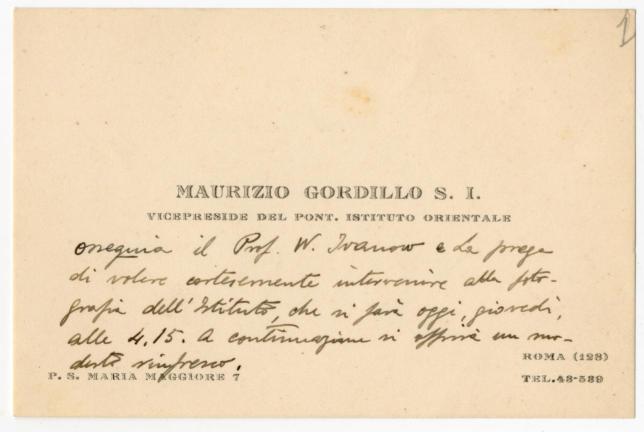 1
MAURIZIO GORDILLO S. I.
VICEPRESIDE DEL PONT. ISTITUTO ORIENTALE
ossequia il Prof. W. Ivanow e La prega
di volere cortesemente intervenire alla foto-
grafia dell'Istituto, che si farà oggi, giovedì,
alle 4,15. A continuazione si offrirà un mo-
desto rinfresco.
ROMA (128)
P. S. MARIA MAGGIORE 7
TEL. 43-589